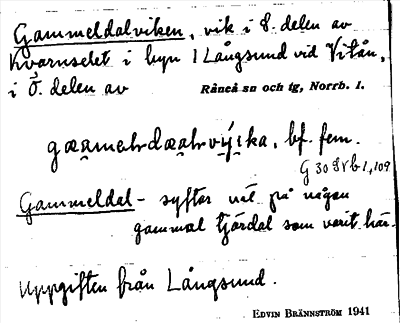 Gammeldalviken, vik i S. delen av
Kvarnselet i byn Långsund vid Vitån,
i Ö. delen av Råneå sn och tg, Norrb. l.
bf. fem.
G 30
Gammeldal- syftar väl på någon
gammal tjärdal som varit här.
Uppgiften från Långsund.
EDVIN BRÄNNSTRÖM 1941